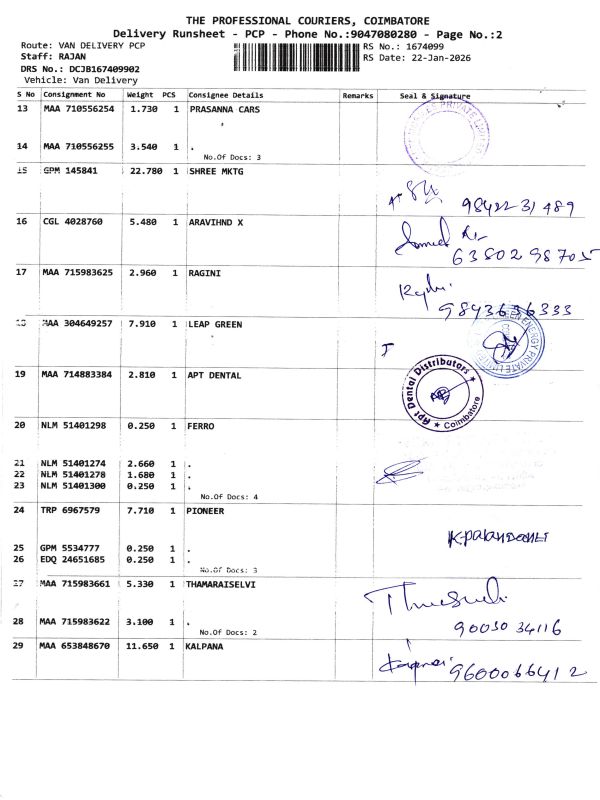 THE PROFESSIONAL COURIERS, COIMBATORE
Delivery Runsheet - PCP - Phone No.:9047080280 - Page No.:2
Route: VAN DELIVERY PCP RS No.: 1674099
Staff: RAJAN RS Date: 22-Jan-2026
DRS No.: DCJB167409902
Vehicle: Van Delivery
S No Consignment No Weight PCS Consignee Details Remarks Seal & Signature
13 MAA 710556254 1.730 1 PRASANNA CARS
14 MAA 710556255 3.540 1 .
No.Of Docs: 3
15 GPM 145841 22.780 1 SHREE MKTG
98422 31489
16 CGL 4028760 5.480 1 ARAVIHND X
63802 98705
17 MAA 715983625 2.960 1 RAGINI
98436 36333
18 MAA 304649257 7.910 1 LEAP GREEN
19 MAA 714883384 2.810 1 APT DENTAL
Apt Dental Distributors
★ Coimbatore ★
20 NLM 51401298 0.250 1 FERRO
21 NLM 51401274 2.660 1 .
22 NLM 51401278 1.680 1 .
23 NLM 51401300 0.250 1 .
No.Of Docs: 4
24 TRP 6967579 7.710 1 PIONEER
25 GPM 5534777 0.250 1 .
26 EDQ 24651685 0.250 1 .
No.Of Docs: 3
27 MAA 715983661 5.330 1 THAMARAISELVI
28 MAA 715983622 3.100 1 .
No.Of Docs: 2
90030 34116
29 MAA 653848670 11.650 1 KALPANA
9600066412